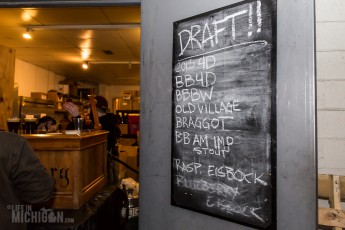 DRAFT!!
2015 4D
BB4D
BBBW
OLD VILLAGE
BRAGGOT
BB AM IMP
STOUT
RASP. EISBOCK
BLUEBERRY
EISBOCK
LIFE IN
MICHIGAN